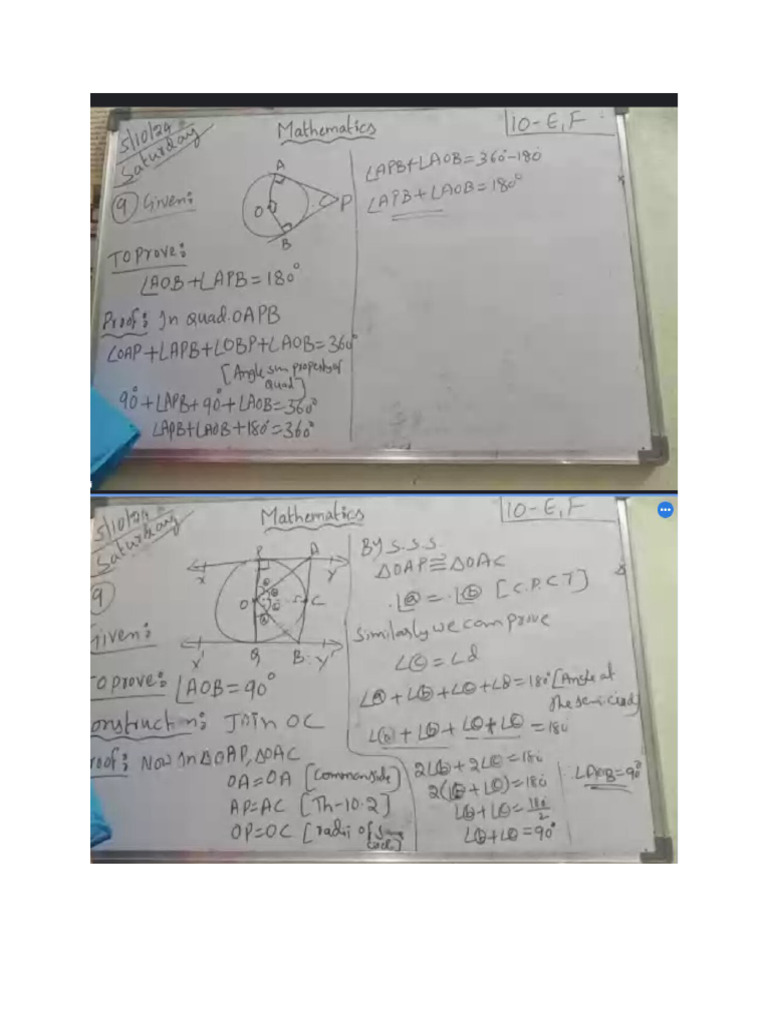 5/10/24
Saturday
Mathematics
10-E,F
9 Given:
A
O
P
B
To Prove:
∠AOB+∠APB=180°
Proof: In quad.OAPB
∠OAP+∠APB+∠OBP+∠AOB=360°
[Angle sum property of
quad]
90°+∠APB+90°+∠AOB=360°
∠APB+∠AOB+180°=360°
∠APB+∠AOB=360-180
∠APB+∠AOB=180°
5/10/24
Saturday
Mathematics
10-E,F
9
P
A
X
Y
O
C
X'
Q
B
Y'
Given:
To prove: ∠AOB=90°
onstruction: JOIN OC
roof: Now In△OAP,△OAC
OA=OA [Common side]
AP=AC [Th-10.2]
OP=OC [radii of same
circle]
By S.S.S
△OAP≅△OAC
∠a=∠b [C.P.C.T]
Similarly we can prove
∠c=∠d
∠a+∠b+∠c+∠d=180° [Angle at
the semicircle]
∠b+∠b+∠c+∠c=180
2∠b+2∠c=180
2(∠b+∠c)=180
∠b+∠c=180/2
∠b+∠c=90°
∠AOB=90°